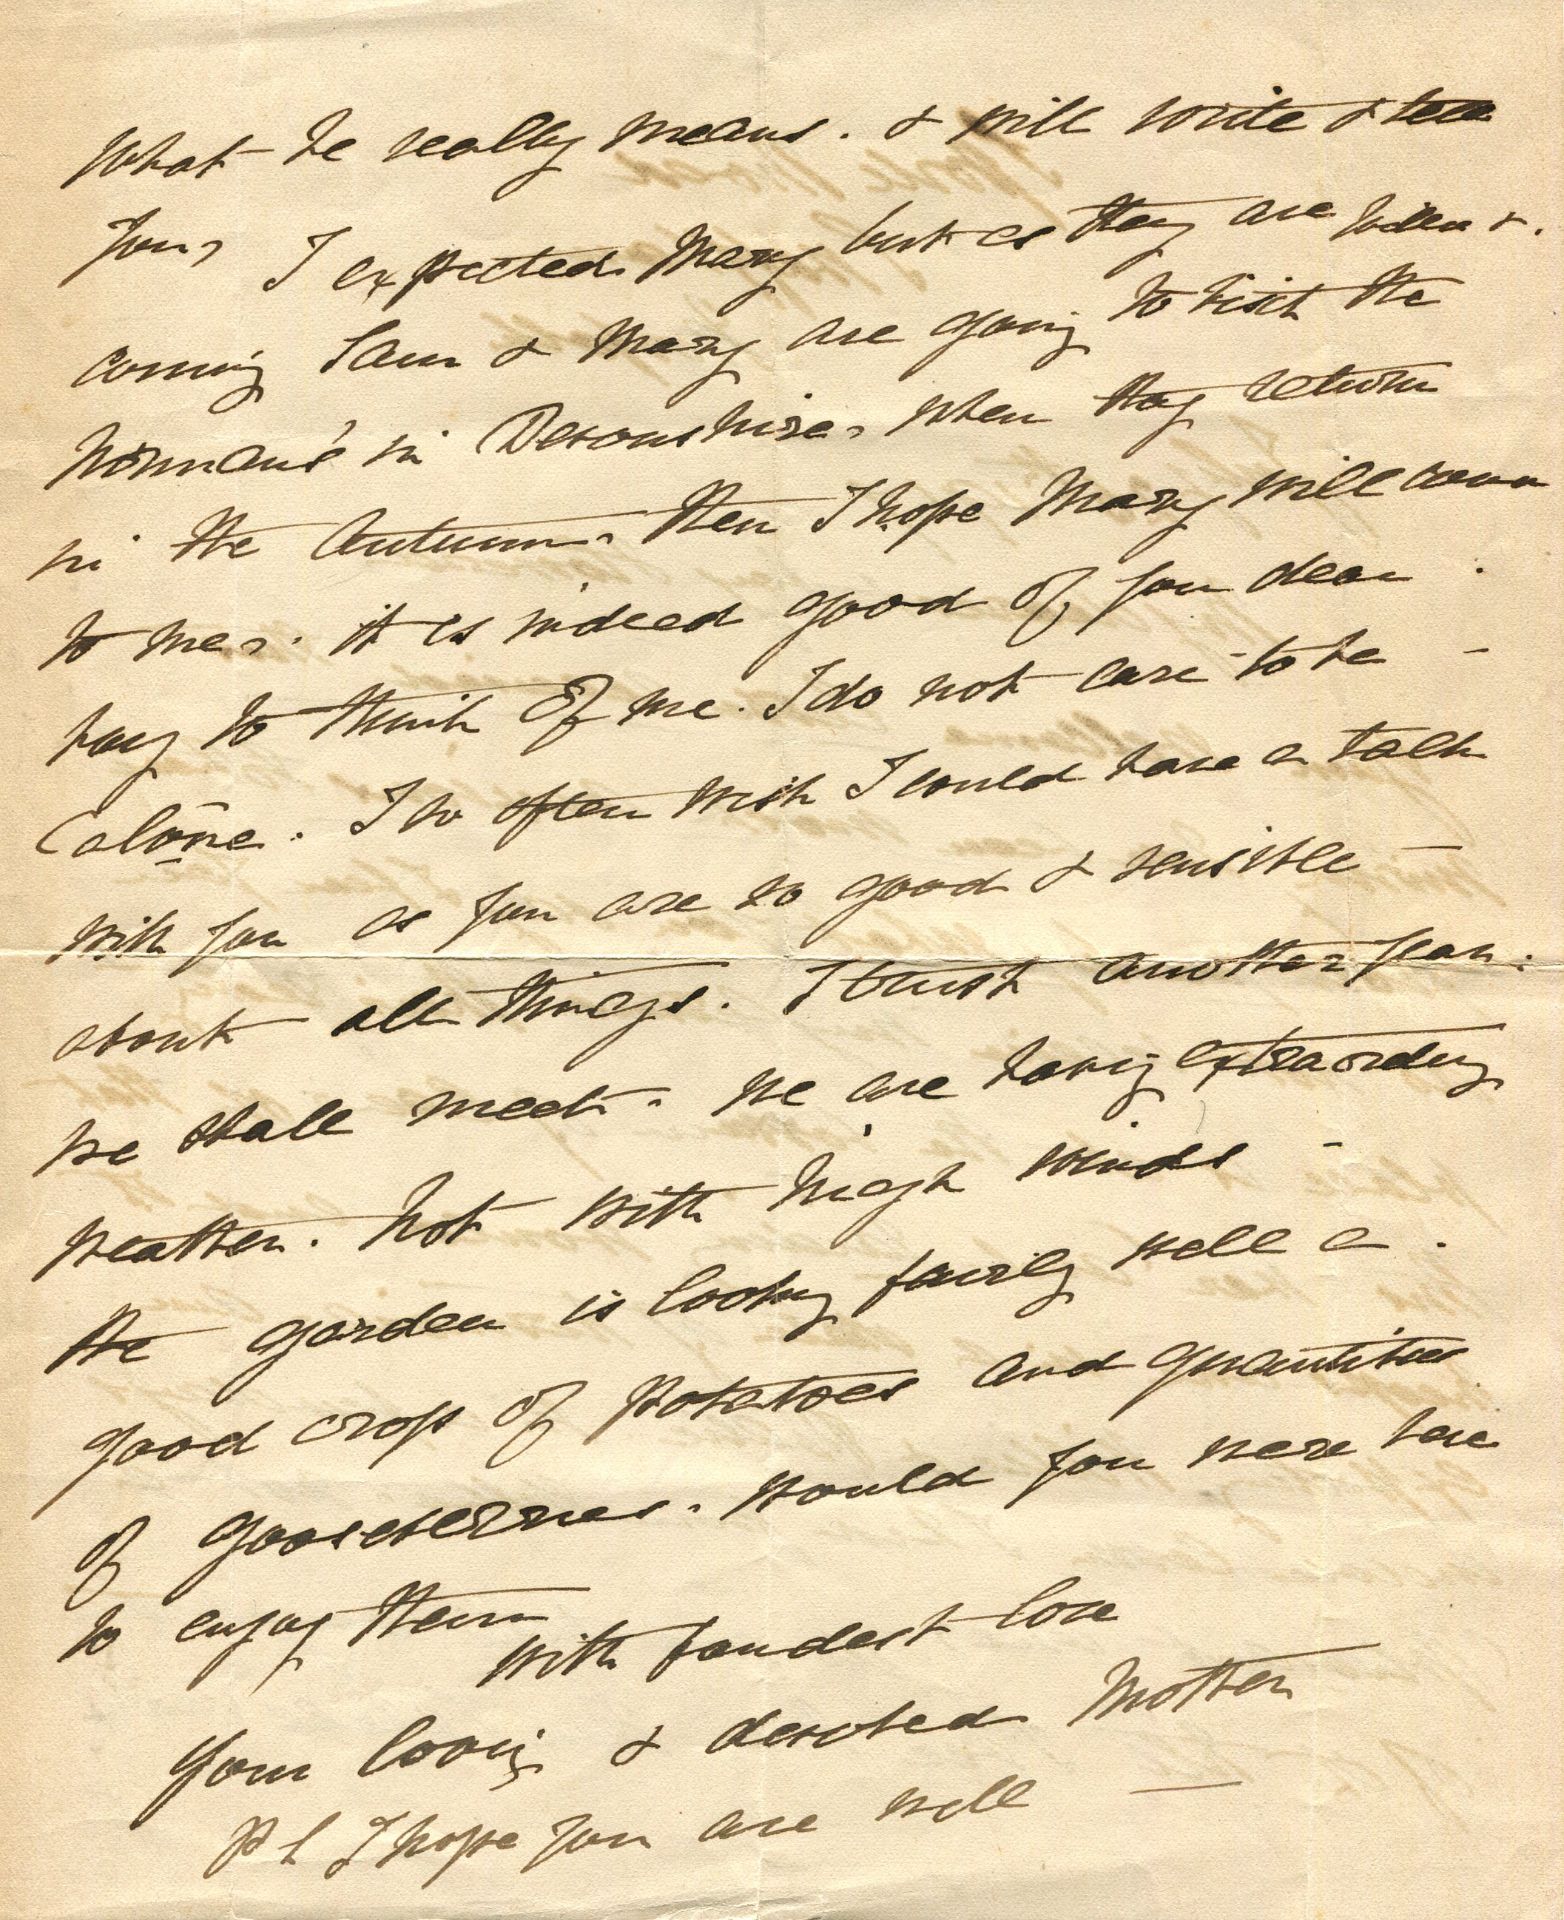 What he really means. & will write & tell
you, I expected Mary but as they are &.
coming Sam & Mary are going to visit the
Norman's in Devonshire, when they return
in the Autumn. then I hope Mary will come
to me. it is indeed good of you dear
boy to think of me. I do not care to be -
alone. I so often wish I could have a talk
with you as you are so good & sensible -
about all things. I trust another year.
we shall meet. we are having extraordiny
weather. hot with high winds -
the garden is looking fairly well a.
good crop of potatoes and quantities
of gooseberries. would you were here
to enjoy them
with fondest love
your loving & devoted Mother
PS I hope you are well —